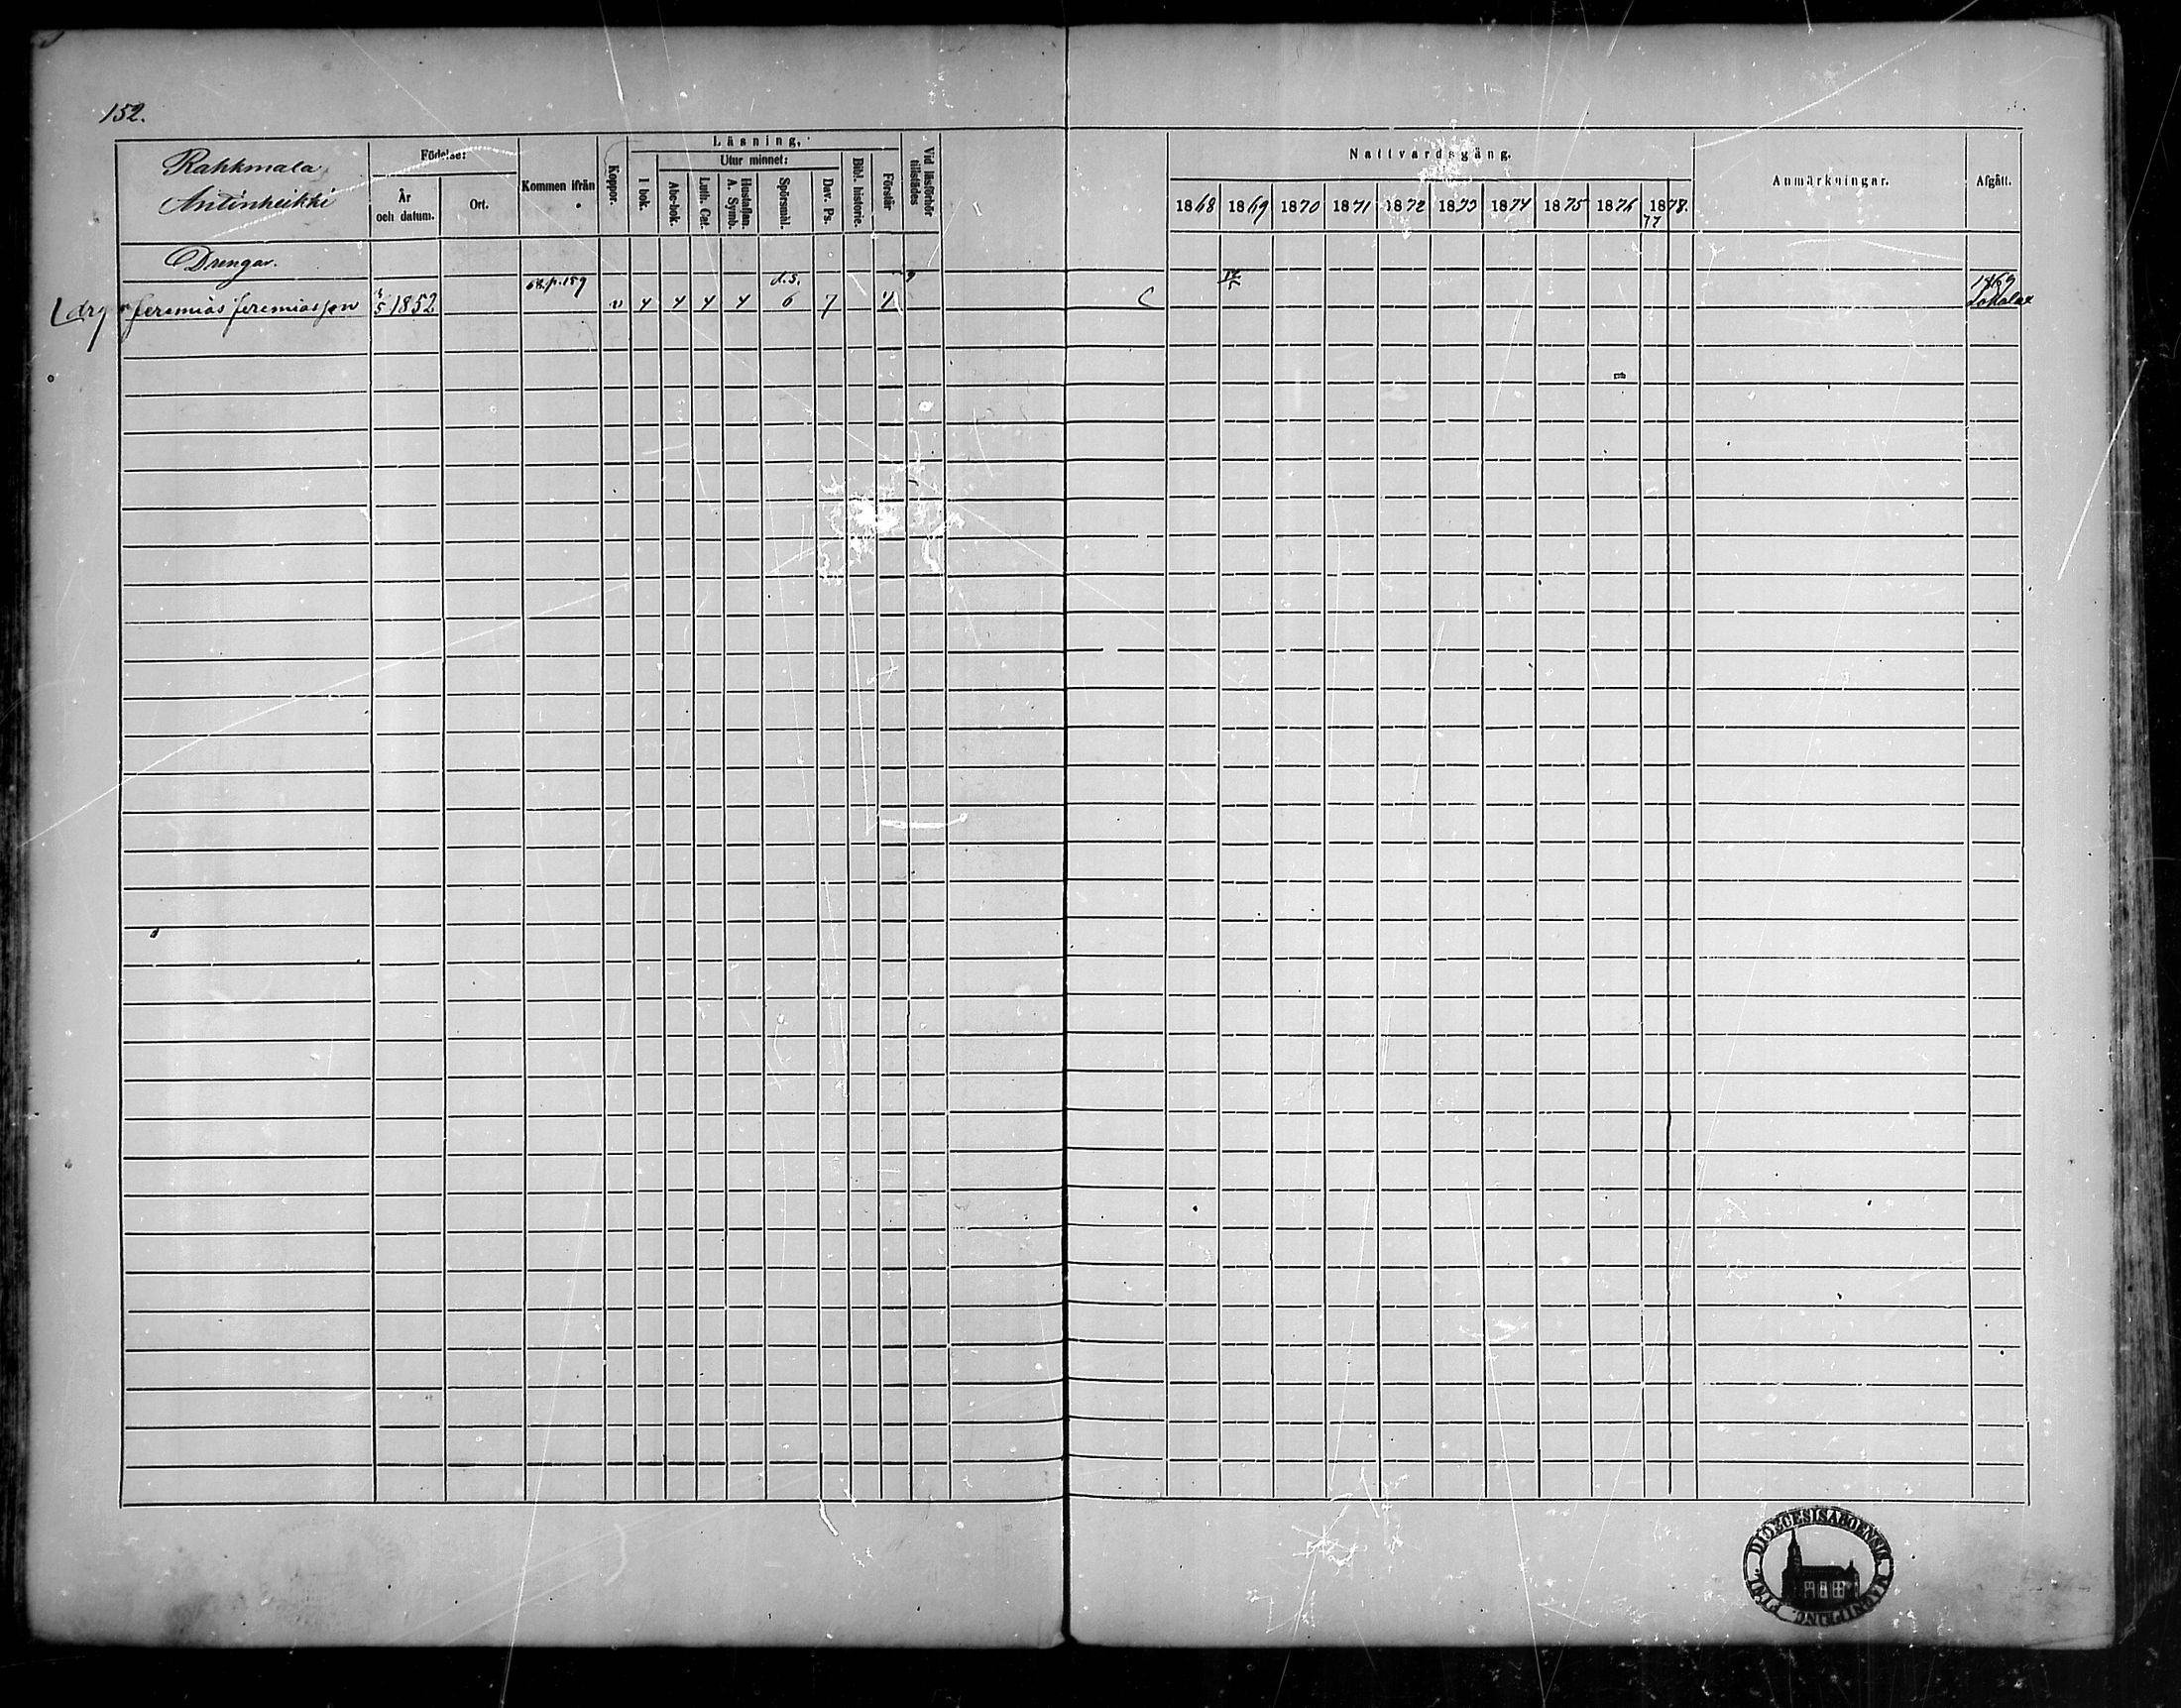 152.
Rahkmala
Antinheikki
Födelse:
År och datum.
Ort.
Kommen ifrån
Koppor.
Läsning,
I bok.
Utur minnet:
Abc-bok.
Luth. Cat.
Hustaflan. A. Symb.
Spörsmål.
Dav. Ps.
Bibl. historie.
Förstår
Vid läsförhör tillstädes
Nattvardsgång.
1868 1869 1870 1871 1872 1873 1874 1875 1876 77 1878.
Anmärkningar.
Afgått.
Drengar.
68. p. 159
d.s.
1869
drg Jeremias Jeremiasson 1852 v 4 4 4 4 6 7 C Lokalax
DIOECESIS ABOENSIS MAGNI PRINC. FINL.